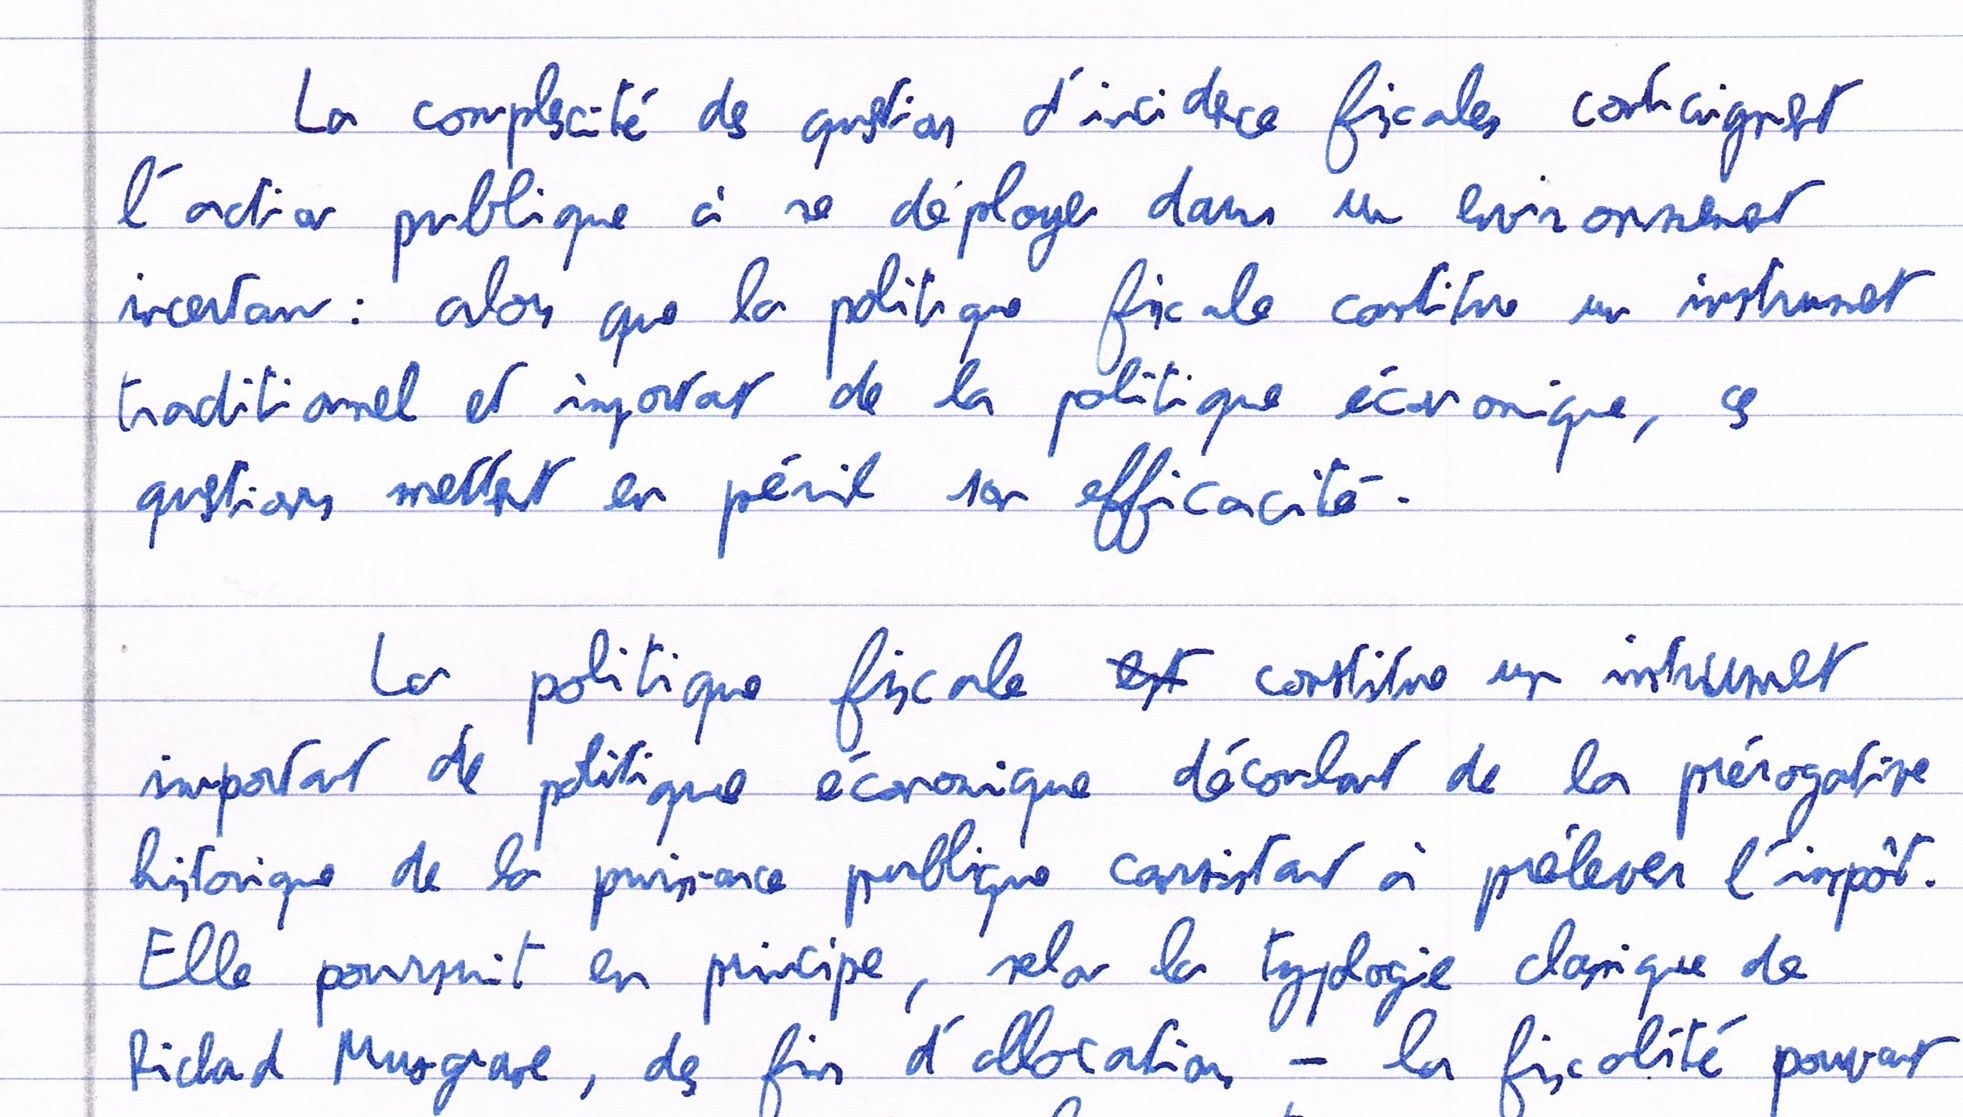 La complexité des questions d'incidence fiscales contraignent
l'action publique à se déployer dans un environnement
incertain : alors que la politique fiscale constitue un instrument
traditionnel et important de la politique économique, ces
questions mettent en péril son efficacité.
La politique fiscale est constitue un instrument
important de politique économique découlant de la prérogative
historique de la puissance publique consistant à prélever l'impôt.
Elle poursuit en principe, selon la typologie classique de
Richard Musgrave, des fins d'allocation – la fiscalité pouvant